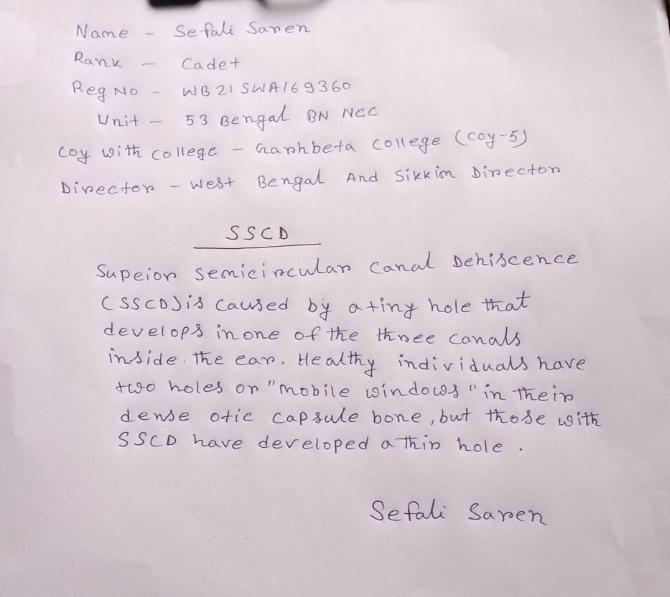 Name - Sefali Saren
Rank - Cadet
Reg No - WB21SWA169360
Unit - 53 Bengal BN NCC
Coy with College - Garhbeta College (Coy-5)
Director - West Bengal And Sikkim Director
SSCD
Supeior Semicircular Canal Dehiscence
(SSCD) is caused by a tiny hole that
develops in one of the three canals
inside the ear. Healthy individuals have
two holes or "mobile windows" in their
dense otic capsule bone, but those with
SSCD have developed a thir hole.
Sefali Saren